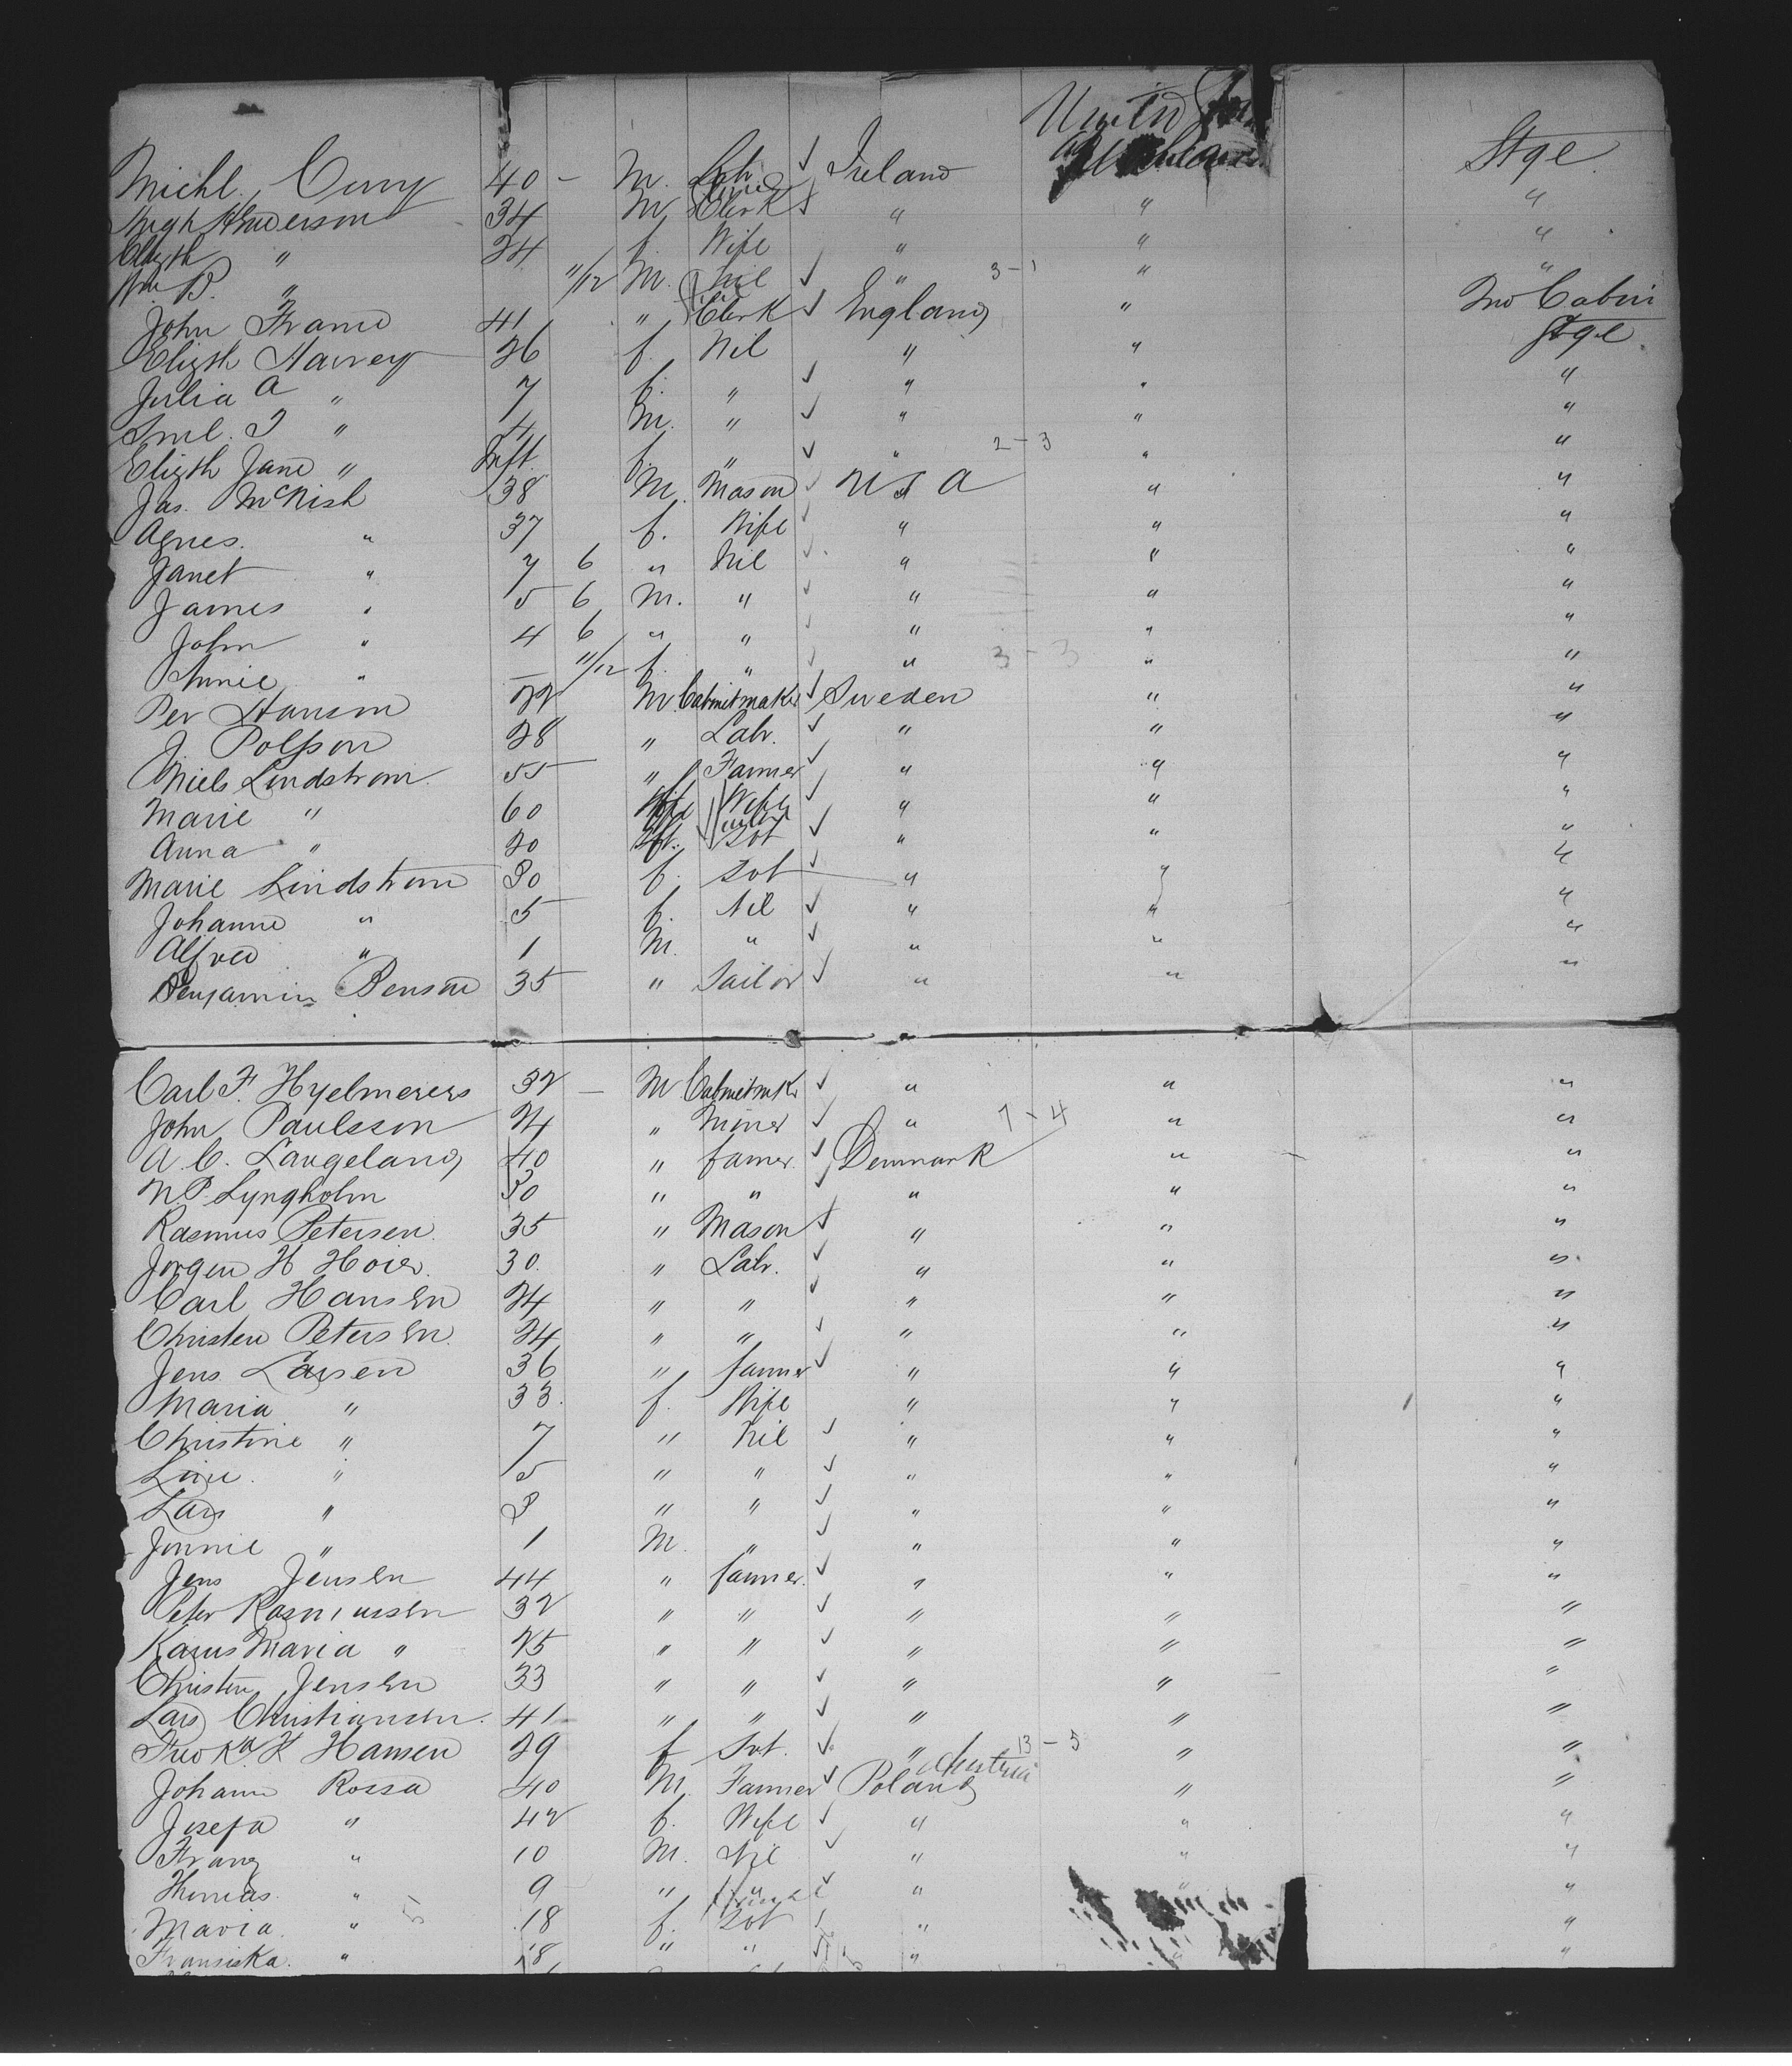 United
Michl. Curry 40 - M. Lab ✓ Ireland Stge
Hugh Anderson 34 M Clerk ✓ " " "
Elizth " 24 f. Wife " " "
Wm B. " 11/12 M. Nil ✓ " 3-1 " "
John Frame 41 " Clerk ✓ England " Cabin
Elizth Harvey 26 f. Nil " " Stge
Julia A " 7 f. " ✓ " " "
Saml. J " 4 M. " ✓ " " "
Elizth Jane " Inft. f. " ✓ " 2-3 " "
Jas. McNish 38 M. Mason ✓ U S A " "
Agnes. " 37 f. Wife ✓ " " "
Janet " 7 6 " Nil ✓ " " "
James " 5 6 M. " ✓ " " "
John " 4 6 " " ✓ " " "
Annie " - 11/12 f. " ✓ " 3-3 " "
Per Hanson 22 M Cabinetmaker ✓ Sweden " "
J. Polsson 28 " Labr. ✓ " " "
Niels Lindstrom 55 " Farmer ✓ " " "
Marie " 60 Wife ✓ " " "
Anna " 20 f. Svt ✓ " " "
Marie Lindstrom 30 f. Svt ✓ " " "
Johanne " 5 f. Nil ✓ " " "
Alfred " 1 M. " ✓ " " "
Benjamin Benson 35 " Sailor ✓ " " "
Carl F. Hyelmeiers 32 - M Cabinetmkr ✓ " " "
John Paulsson 24 " Miner ✓ " 7-4 " "
A. C. Langeland 40 " farmer. ✓ Denmark " "
N. P. Lyngholm 30 " " ✓ " " "
Rasmus Petersen. 35 " Mason ✓ " " "
Jorgen H Hoier. 30. " Labr. ✓ " " "
Carl Hansen 24 " " ✓ " " "
Christen Petersen. 24 " " ✓ " " "
Jens Larsen 36 " farmer ✓ " " "
Maria " 33. f. Wife " " "
Christine " 7 " Nil ✓ " " "
Line. " 5 " " ✓ " " "
Lars " 3 " " ✓ " " "
Jennie " 1 M. " ✓ " " "
Jens Jensen 44 " farmer. ✓ " " "
Peter Rasmussen 32 " " ✓ " " "
Karus Maria " 25 " " ✓ " " "
Christen Jensen 33 " " ✓ " " "
Lars Christiansen. 41 " " ✓ " " "
Fredka K Hansen 29 f Svt. ✓ " 13-5 " "
Austria
Johann Rossa 40 M. Farmer ✓ Poland " "
Josefa " 42 f. Wife ✓ " " "
Franz " 10 M. Nil ✓ " " "
Thomas. " 9 " " ✓ " " "
Maria. " 18 f. Svt ✓ " "
Fransiska. " 18 " " ✓ " "